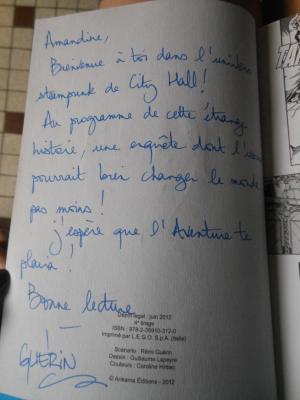 Amandine,
Bienvenue à toi dans l'univers
steampunk de City Hall!
Au programme de cette étrange
histoire, une enquête dont l'issue
pourrait bien changer le monde
pas moins!
j'espère que l'Aventure te
plaira!
Bonne lecture
Dépôt légal : juin 2012
4e tirage
ISBN : 978-2-35910-312-0
Imprimé par L.E.G.O. S.p.A. (Italie)
Scénario : Rémi Guérin
Dessin : Guillaume Lapeyre
Couleurs : Caroline Hirbec
© Ankama Éditions - 2012
GUÉRIN